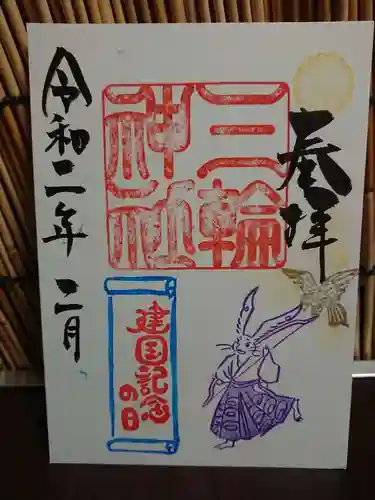 参拝
三輪
神社
建国記念
の日
令和二年二月